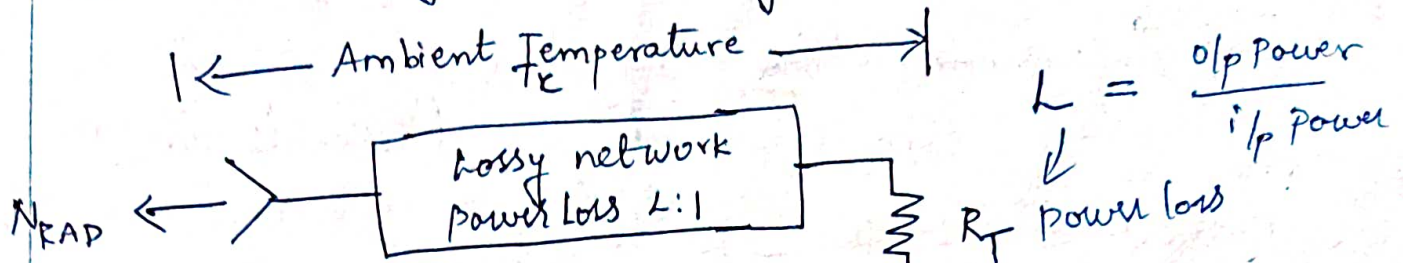 Ambient Temperature
Tx
L = o/p Power
i/p Power
Lossy network
power Loss L:1
NRAD
RT
Power loss